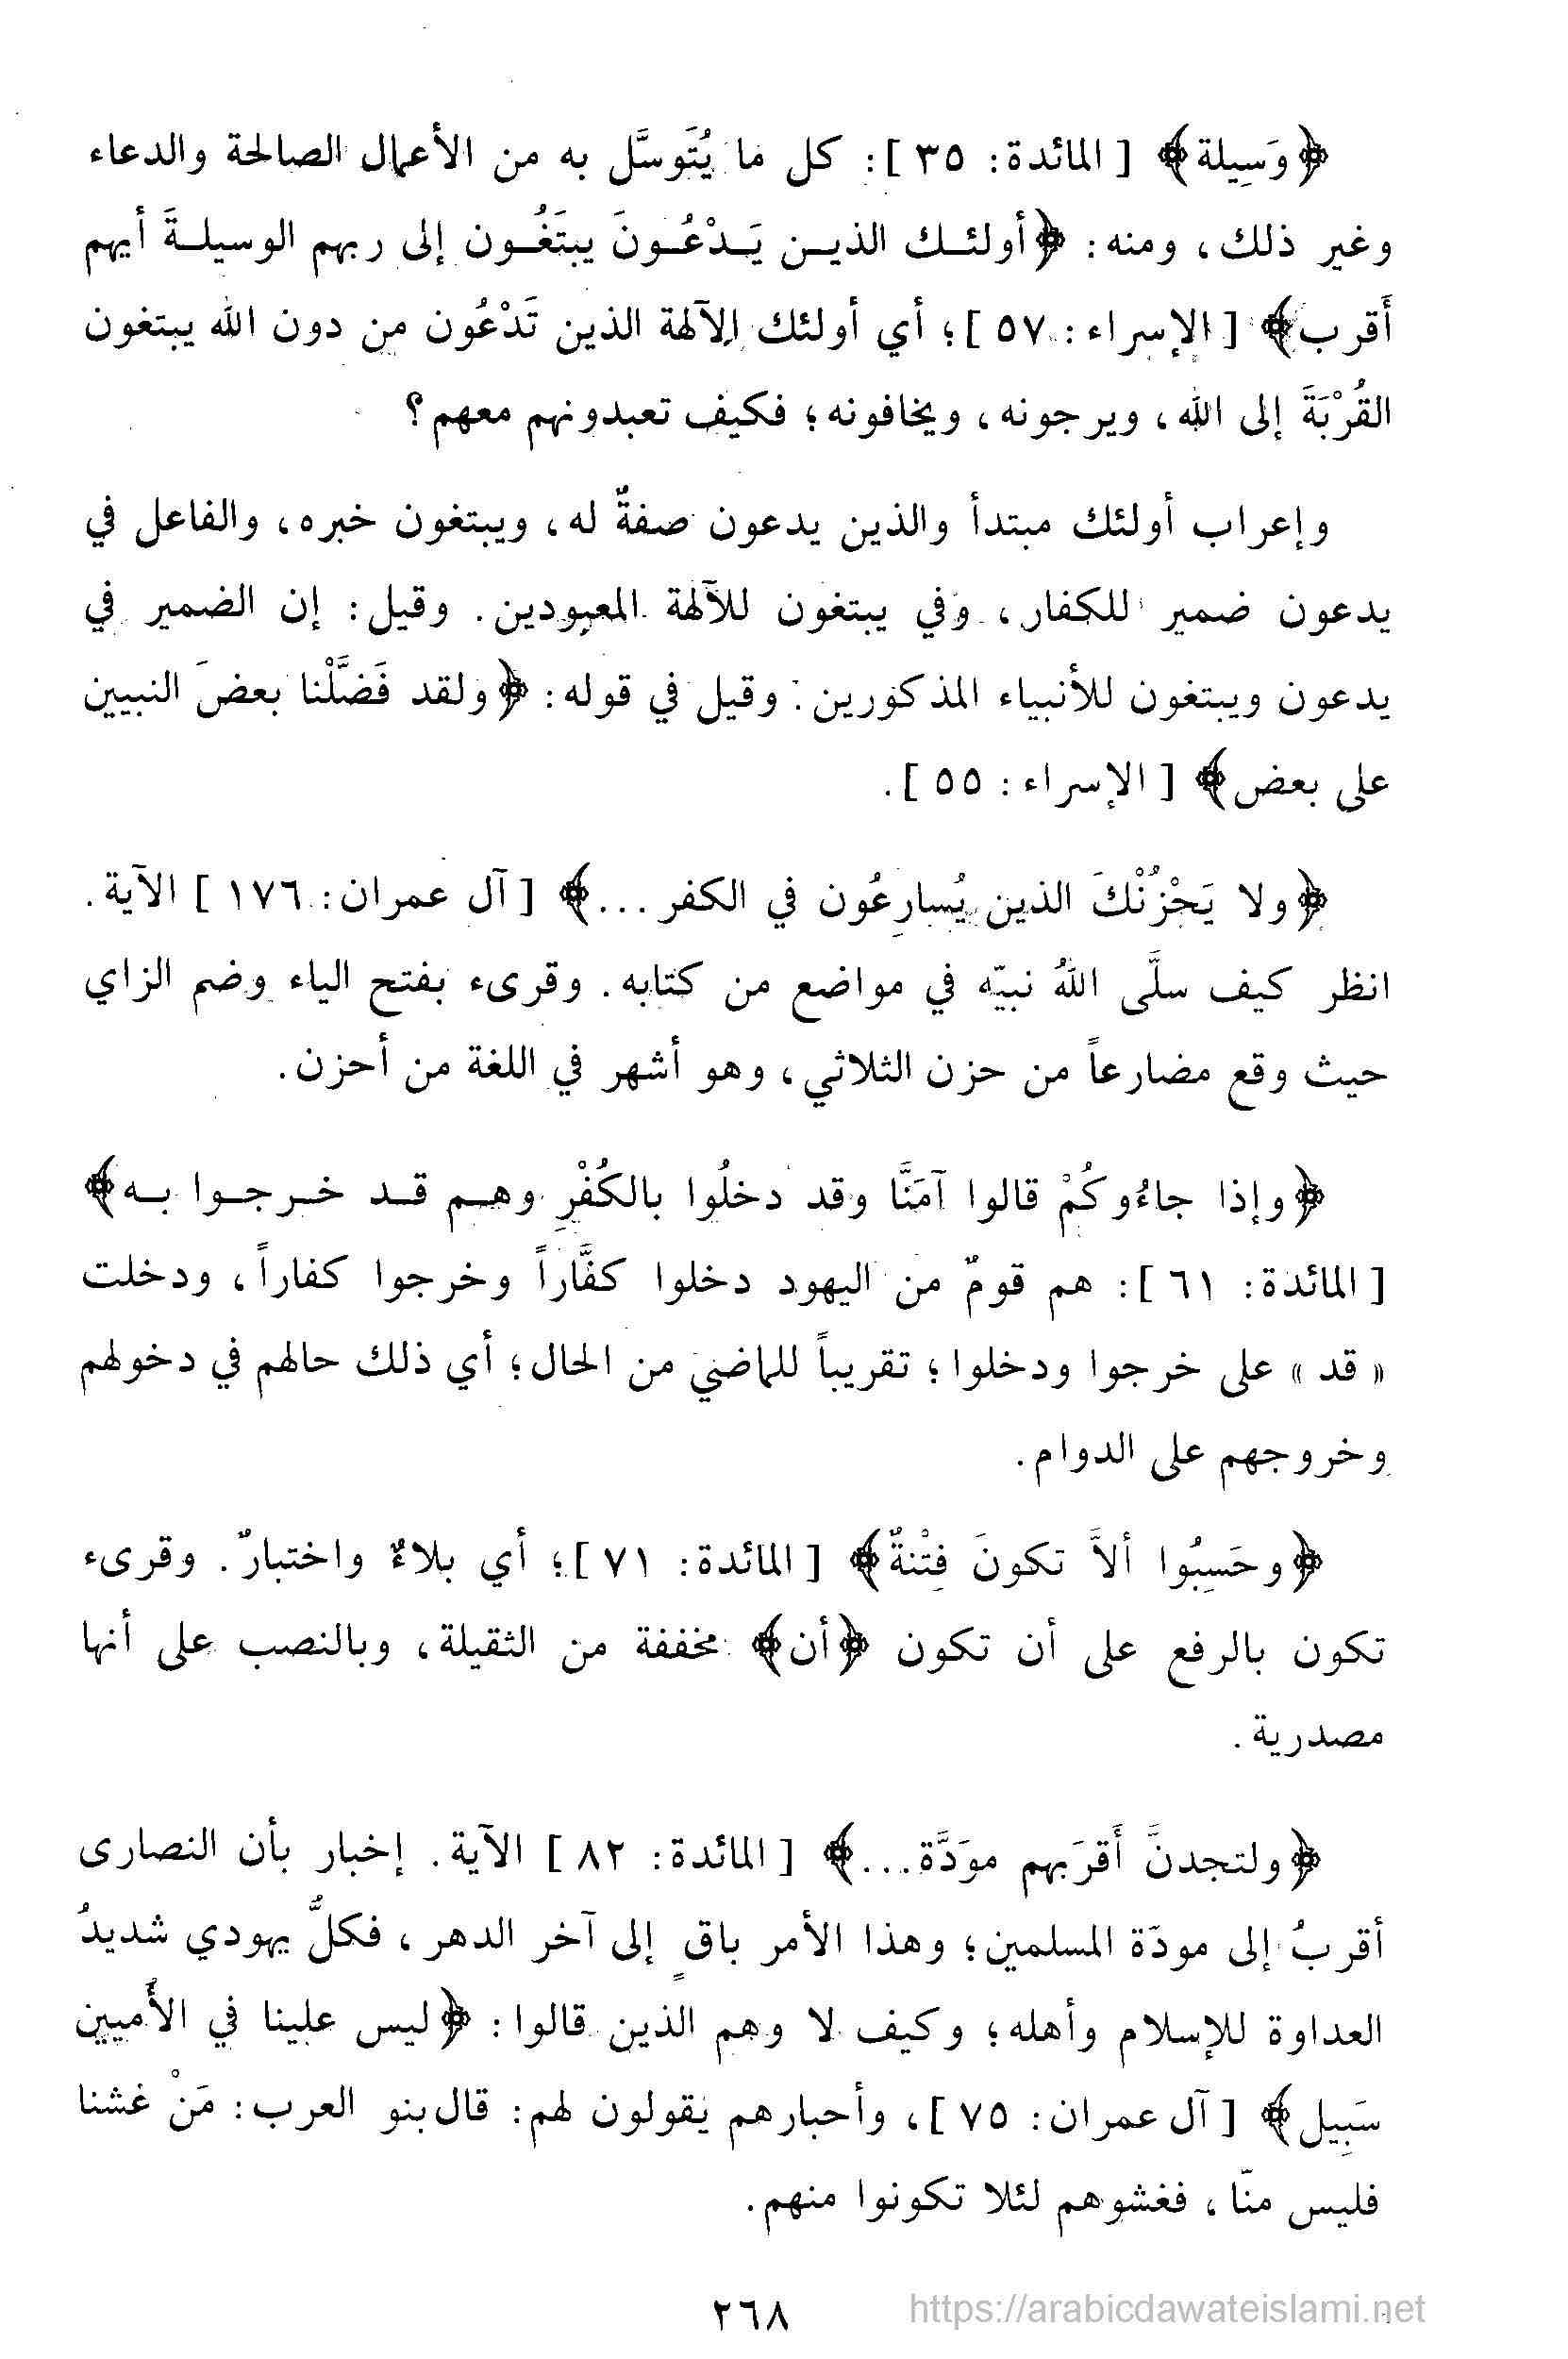 ﴿وَسِيلة﴾ [ المائدة: ٣٥ ]: كل ما يُتَوسَّل به من الأعمال الصالحة والدعاء
وغير ذلك، ومنه: ﴿أولئـك الذيـن يَـدْعُـونَ يبتَغُـون إلى ربهم الوسيلـةَ أيهم
أَقرب﴾ [ الإسراء: ٥٧ ]؛ أي أولئك الآلهة الذين تَدْعُون من دون الله يبتغون
القُرْبَةَ إلى الله، ويرجونه، ويخافونه؛ فكيف تعبدونهم معهم؟
وإعراب أولئك مبتدأ والذين يدعون صفةٌ له، ويبتغون خبره، والفاعل في
يدعون ضمير للكفار، وفي يبتغون للآلهة المعبودين. وقيل: إن الضمير في
يدعون ويبتغون للأنبياء المذكورين. وقيل في قوله: ﴿ولقد فَضَّلْنا بعضَ النبيين
على بعض﴾ [ الإسراء: ٥٥ ].
﴿ولا يَحْزُنْكَ الذين يُسارِعُون في الكفر...﴾ [ آل عمران: ١٧٦ ] الآية.
انظر كيف سلَّى اللهُ نبيّه في مواضع من كتابه. وقرىء بفتح الياء وضم الزاي
حيث وقع مضارعاً من حزن الثلاثي، وهو أشهر في اللغة من أحزن.
﴿وإذا جاءُوكُمْ قالوا آمَنَّا وقد دخلُوا بالكُفْرِ وهـم قـد خـرجـوا بـه﴾
[ المائدة: ٦١ ]: هم قومٌ من اليهود دخلوا كفَّاراً وخرجوا كفاراً، ودخلت
« قد » على خرجوا ودخلوا؛ تقريباً للماضي من الحال؛ أي ذلك حالهم في دخولهم
وخروجهم على الدوام.
﴿وحَسِبُوا ألاَّ تكونَ فِتْنةٌ﴾ [ المائدة: ٧١ ]؛ أي بلاءٌ واختبارٌ. وقرىء
تكون بالرفع على أن تكون ﴿أن﴾ مخففة من الثقيلة، وبالنصب على أنها
مصدرية.
﴿ولتجدنَّ أَقرَبهم موَدَّة...﴾ [ المائدة: ٨٢ ] الآية. إخبار بأن النصارى
أقربُ إلى مودَة المسلمين؛ وهذا الأمر باقٍ إلى آخر الدهر، فكلُّ يهودي شديدُ
العداوة للإسلام وأهله؛ وكيف لا وهم الذين قالوا: ﴿ليس علينا في الأُميين
سَبِيل﴾ [ آل عمران: ٧٥ ]، وأحبارهم يقولون لهم: قال بنو العرب: مَنْ غشنا
فليس منّا، فغشوهم لئلا تكونوا منهم.
٢٦٨
https://arabicdawateislami.net